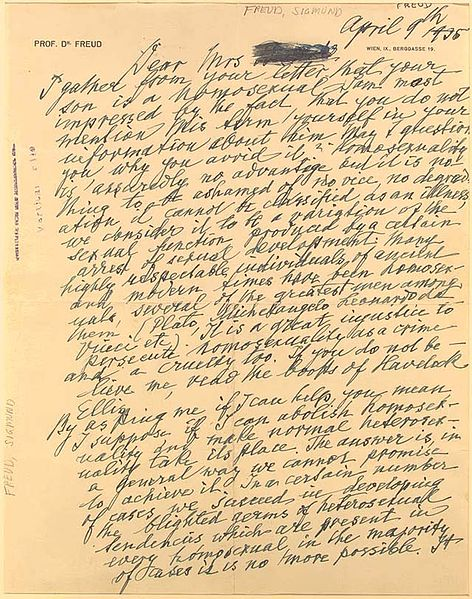 FREUD, SIGMUND
FREUD
April 9th 1935
PROF. DR. FREUD
WIEN, IX., BERGGASSE 19.
Dear Mrs
I gather from your letter that your
son is a homosexual. I am most
impressed by the fact, that you do not
mention this term yourself in your
information about him. May I question
you why you avoid it? Homosexuality
is assuredly no advantage but it is no-
thing to be ashamed of, no vice, no degrad-
ation, it cannot be classified as an illness
we consider it to be a variation of the
sexual function produced by a certain
arrest of sexual development. Many
highly respectable individuals of ancient
and modern times have been homosex-
uals, several of the greatest men among
them (Plato, Michelangelo, Leonardo da
Vinci etc). It is a great injustice to
persecute homosexuality as a crime
and a cruelty too. If you do not be-
lieve me read the books of Havelock
Ellis.
By asking me if I can help, you mean
I suppose if I can abolish homosex-
uality and make normal heterosex-
uality take its place. The answer is, in
a general way we cannot promise
to achieve it. In a certain number
of cases we succeed in developing
the blighted germs of heterosexual
tendencies which are present in
every homosexual, in the majority
of cases it is no more possible. It
FREUD, SIGMUND